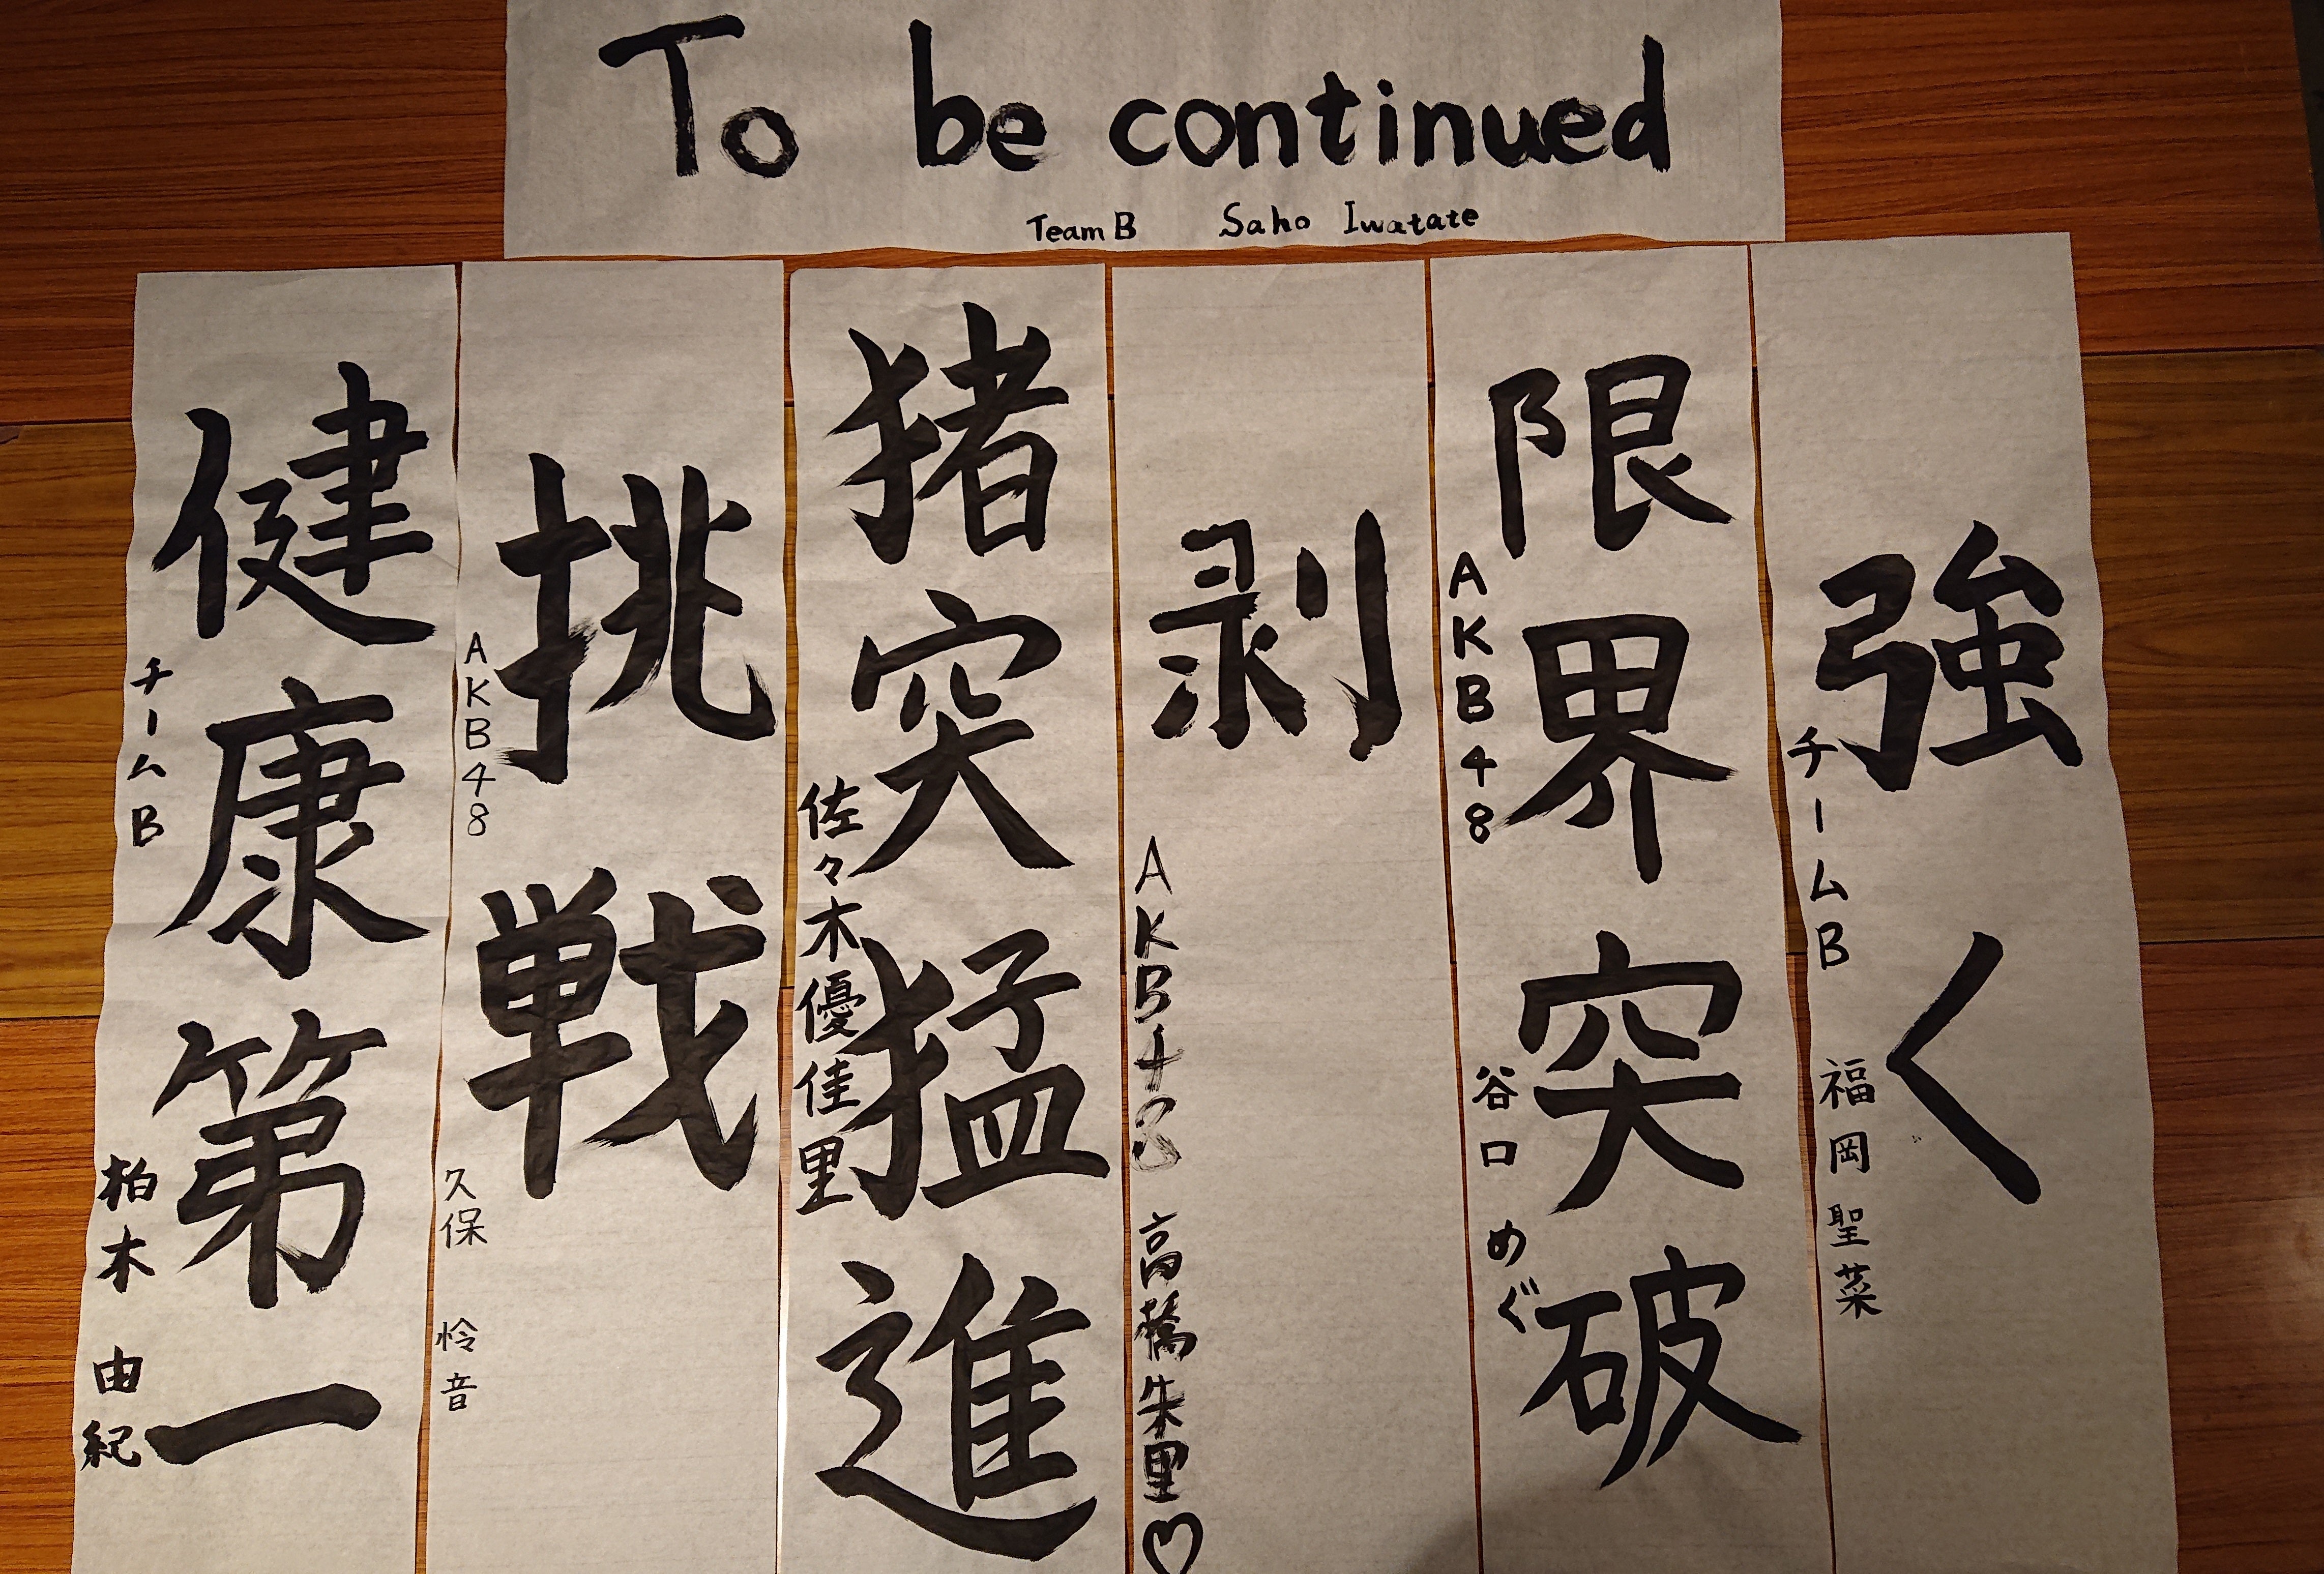 To be continued
Team B Saho Iwatate
強く
チームB 福岡聖菜
限界突破
AKB48 谷口めぐ
剥
AKB48 高橋朱里♡
猪突猛進
佐々木優佳里
挑戦
AKB48 久保怜音
健康第一
チームB 柏木由紀